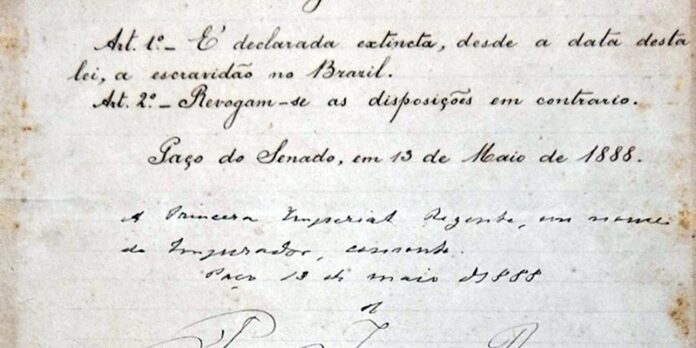 Art. 1º — É declarada extincta, desde a data desta
lei, a escravidão no Brazil.
Art. 2º — Revogam-se as disposições em contrario.
Paço do Senado, em 13 de Maio de 1888.
A Princesa Imperial Regente, em nome
do Imperador, consente.
Paço 13 de maio de 1888